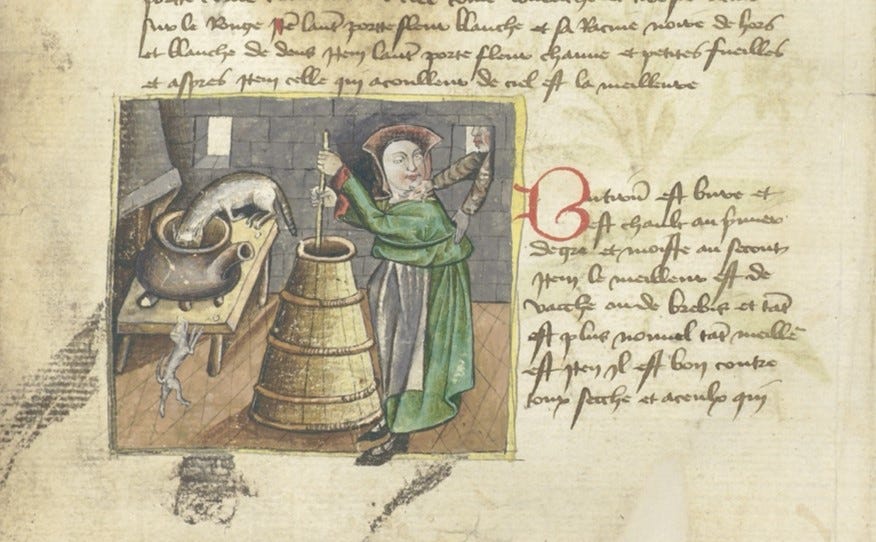 sur le Rouge Itē lautr̄ porte fleur blanche et sa Racine noire de hors
et blanche de dens Item lautr̄ porte fleur et petites fueilles
et aspres Item celle qui acoulleur de ciel est la meilleure
Butirū est burre et
est chault au primer
degre et moiste au second
Item le meilleur est de
vacche ou de brebis et tāt
est plus nouuel tāt meille
est Item Il est bon contre
toux seche et aceulx qui